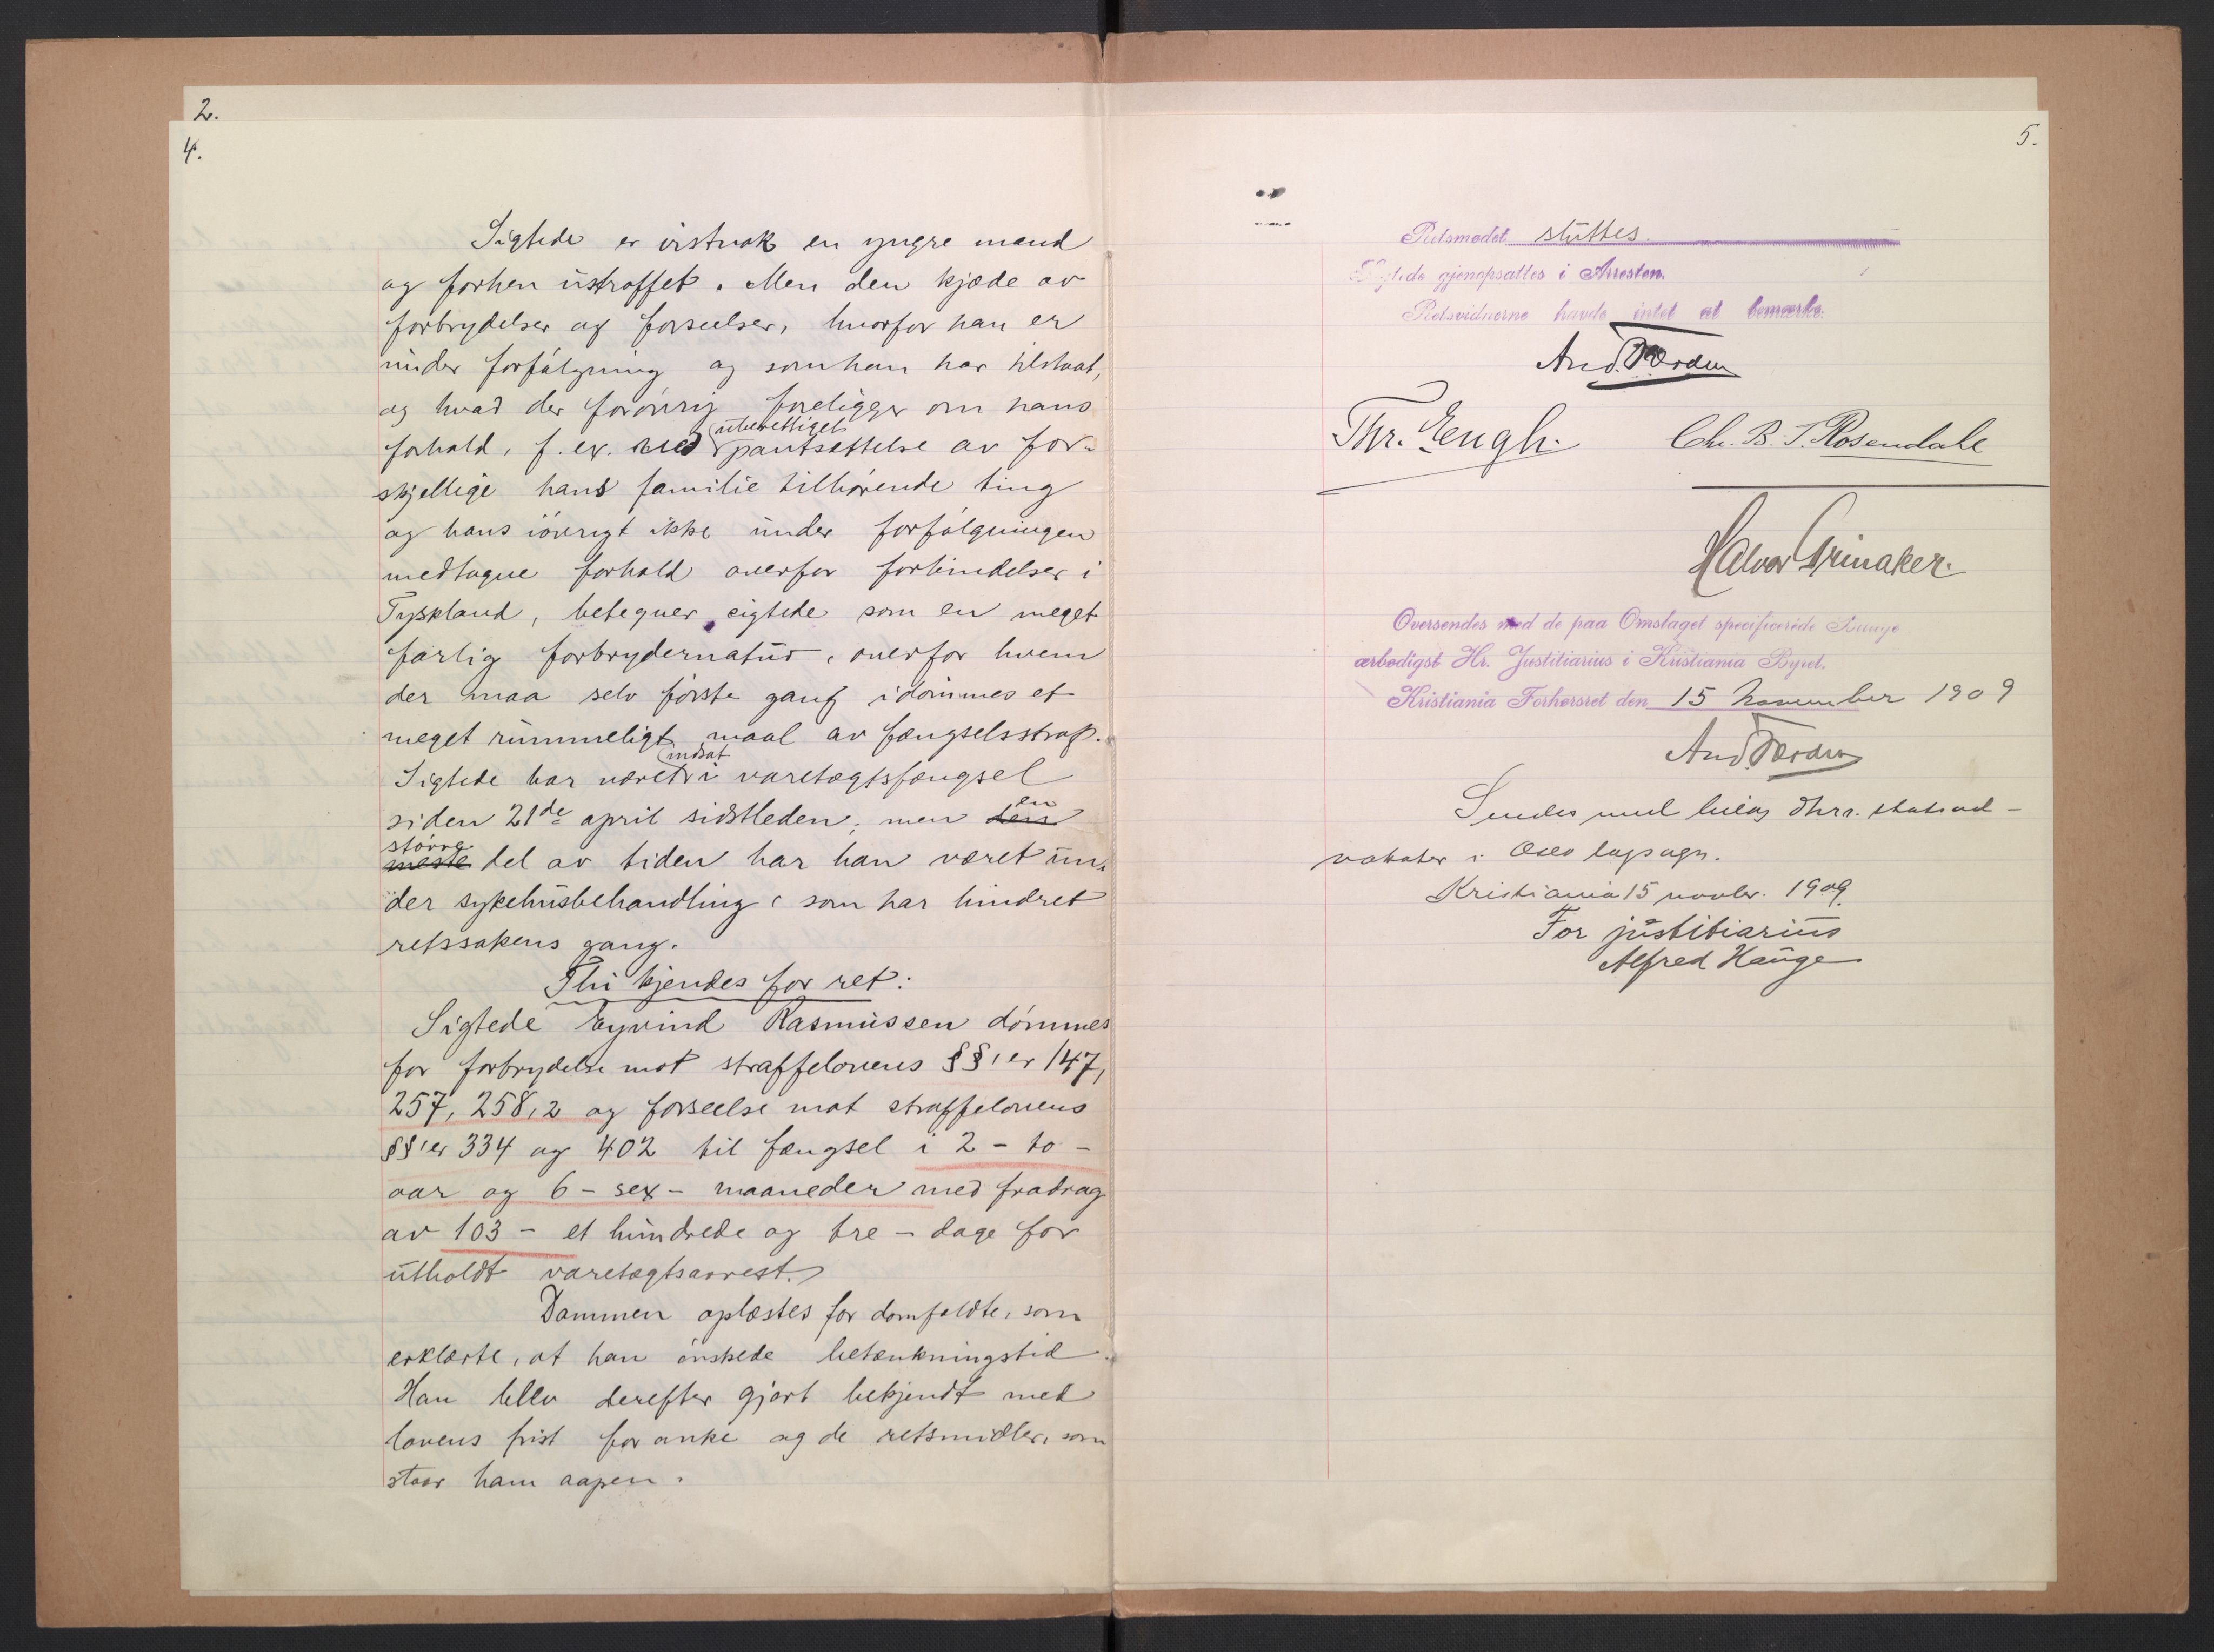 2.
4.
Sigtede er vistnok en yngre mand
og forhen ustraffet. Men den kjæde av
forbrydelser og forseelser, hvorfor han er
under forfølgning og som han har tilstaat,
og hvad der forøvrig foreligger om hans
uberettiget
forhold, f. ex. med pantsættelse av for-
skjellige hans familie tilhørende ting
og hans iøvrigt ikke under forfølgningen
medtagne forhold overfor forbindelser i
Tyskland, betegner sigtede som en meget
farlig forbrydernatur, overfor hvem
der maa selv første gang idømmes et
meget rummeligt maal av fængselsstraf.
indsat
Sigtede har været i varetægtsfængsel
en
siden 21de april sidstleden, men den
større
meste del av tiden har han været un-
der sykehusbehandling, som har hindret
retssakens gang.
Thi kjendes for ret:
Sigtede Eyvind Rasmussen dømmes
for forbrydelse mot straffelovens §§'er 147,
257, 258,2 og forseelse mot straffelovens
§§'er 334 og 402 til fængsel i 2 - to -
aar og 6 - sex - maaneder med fradrag
av 103 - et hundrede og tre - dage for
utholdt varetægtsarrest.
Dommen oplæstes for domfældte, som
erklærte, at han ønskede betænkningstid.
Han blev derefter gjort bekjendt med
lovens frist for anke og de retsmidler, som
staar ham aapen.
5.
Retsmødet sluttes.
Sigtede gjenopsattes i Arresten.
Retsvidnerne havde intet at bemærke.
And. Færden
Thr. Engh. Chr. B. T. Rosendahl
Halvor Grinaker.
Oversendes med de paa Omslaget specificerede
ærbødigst Hr. Justitiarius i Kristiania Byret.
Kristiania Forhørsret den 15 November 1909
And. Færden
Sendes med bilag dhrr. statsad-
vokater i Oslo lagsogn.
Kristiania 15 novbr. 1909.
For justitiarius
Alfred Hauge